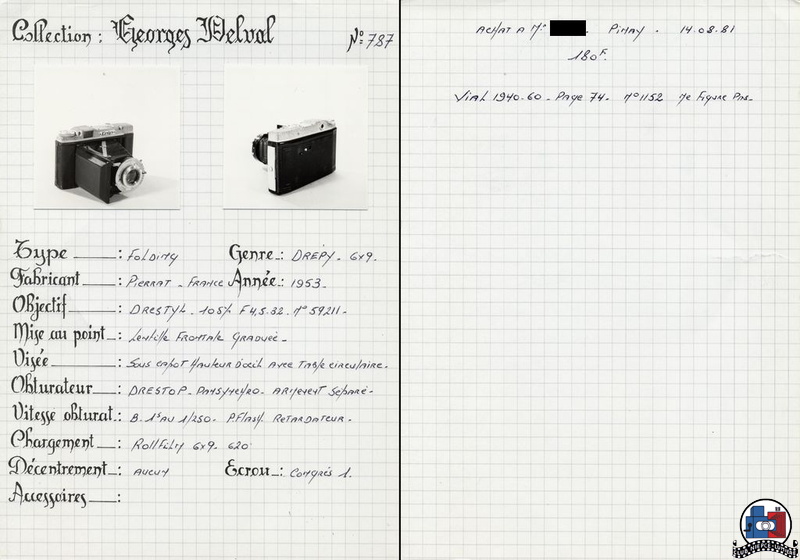 Collection : Georges Delval
N°: 787
Type : Folding
Genre : DREPY - 6x9.
Fabricant : PIERRAT - FRANCE
Année : 1953.
Objectif : DRESTYL - 105% F4,5.32. N° 59211.
Mise au point : Lentille FRONTALE GRADUÉE -
Visée : Sous capot Hauteur d'oeil AVEC Table circulaire.
Obturateur : DRESTOP - PANSYNCHRO - ARMEMENT SÉPARÉ -
Vitesse obturat. : B. 1s AU 1/250 - P.Flash. RETARDATEUR -
Chargement : ROLLFILM 6x9. 620
Décentrement : AUCUN
Ecrou : Congrès 1.
Accessoires :
ACHAT A Mr . PINAY . 14.08.81
180 F.
Vial 1940-60 - Page 74. N° 1152 Ne Figure Pas -